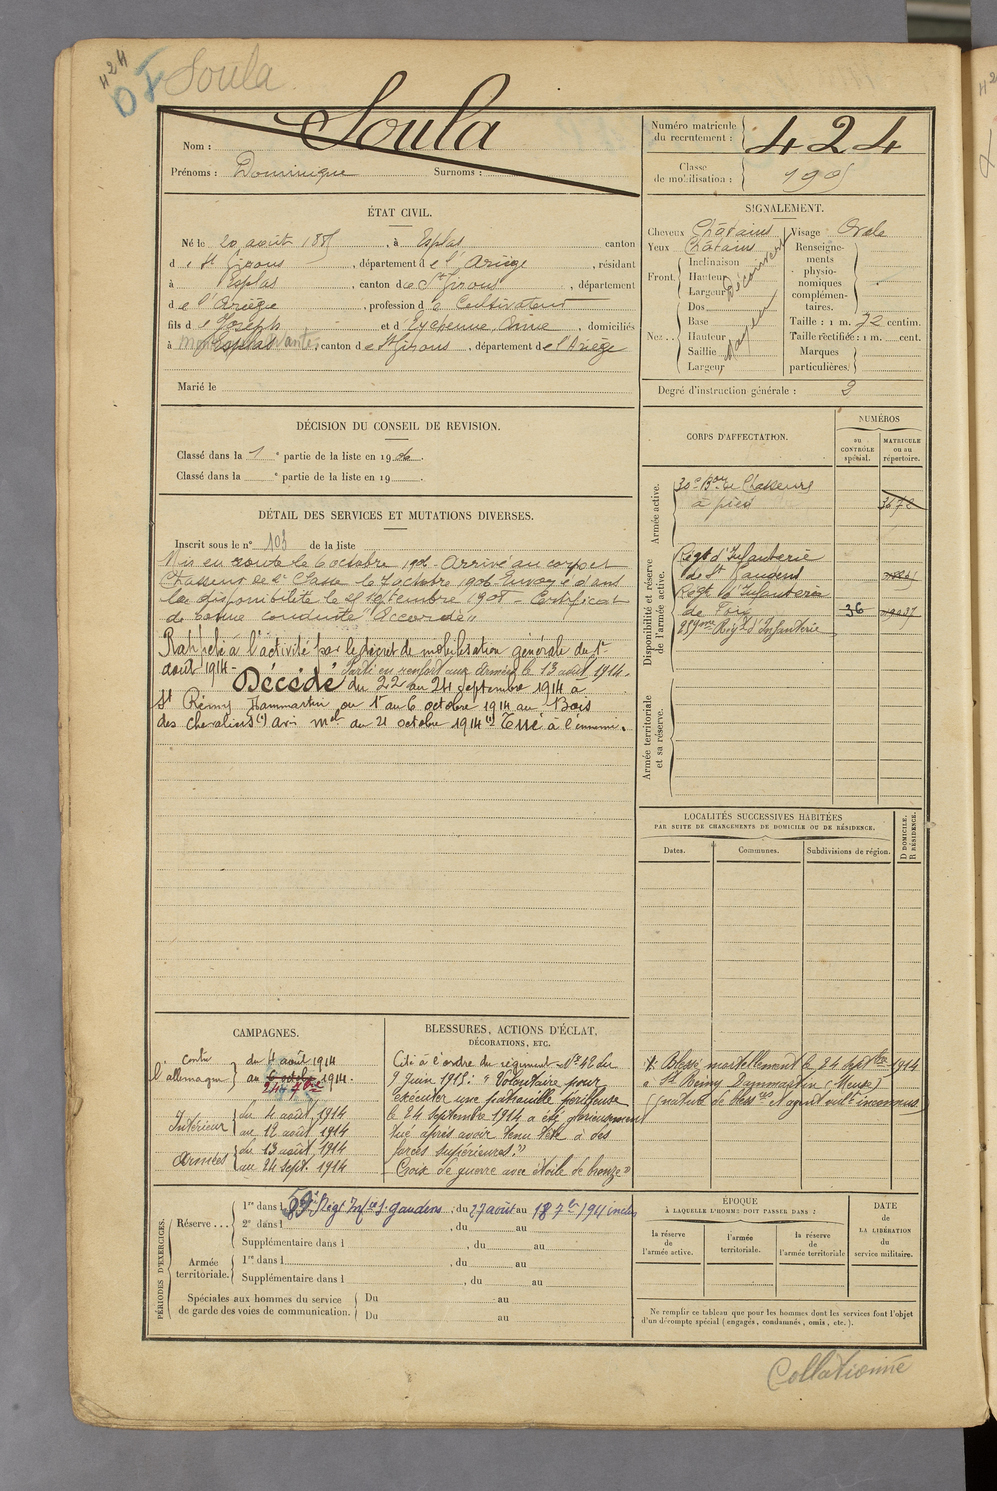 424
Soula
Nom : Soula
Prénoms : Dominique Surnoms :
Numéro matricule du recrutement : 424
Classe de mobilisation : 1905
ÉTAT CIVIL.
Né le 20 août 1885, à Esplas canton
de St Girons, département de l'Ariège, résidant
à Esplas, canton de St Girons, département
de l'Ariège, profession de Cultivateur
fils de Joseph et d'Eychenne, Anne, domiciliés
à Esplas, canton de St Girons, département de l'Ariège
Marié le
SIGNALEMENT.
Cheveux Châtains
Yeux Châtains
Front. Inclinaison
Hauteur
Largeur
Découvert
Nez... Dos
Base
Hauteur
Saillie
Largeur
Moyen
Visage Ovale
Renseignements physionomiques complémentaires.
Taille : 1 m. 72 centim.
Taille rectifiée : 1 m. cent.
Marques particulières
Degré d'instruction générale : 2
DÉCISION DU CONSEIL DE REVISION.
Classé dans la 1 e partie de la liste en 1906.
Classé dans la e partie de la liste en 19 .
DÉTAIL DES SERVICES ET MUTATIONS DIVERSES.
Inscrit sous le n° 103 de la liste
Mis en route le 6 octobre 1906. Arrivé au corps et
Chasseur de 2e Classe le 7 octobre 1906 Envoyé dans
la disponibilité le septembre 1908 - Certificat
de bonne conduite "Accordé"
Rappelé à l'activité par le décret de mobilisation générale du 1er
août 1914 - Parti en renfort aux armées le 13 août 1914.
Décédé du 22 au 24 septembre 1914 à
St Rémy Hammartin ou 1er au 6 octobre 1914 au Bois
des chevaliers (1) avis mel du 21 octobre 1914 (1) Tué à l'ennemi.
CORPS D'AFFECTATION.
NUMÉROS
au CONTRÔLE spécial.
MATRICULE ou au répertoire.
Armée active.
30e Bon de Chasseurs
à pied 3672
Disponibilité et réserve de l'armée active.
Regt d'Infanterie
de St Gaudens
Regt d'Infanterie
de Foix 36
259ème Régt d'Infanterie
Armée territoriale et sa réserve.
LOCALITÉS SUCCESSIVES HABITÉES
PAR SUITE DE CHANGEMENTS DE DOMICILE OU DE RÉSIDENCE.
Dates.
Communes.
Subdivisions de région.
D DOMICILE.
R RÉSIDENCE.
CAMPAGNES.
contre l'allemagne du 4 août 1914
au 6 octobre 1914.
24 7bre
Intérieur du 4 août 1914
au 12 août 1914
Armées du 13 août 1914
au 24 sept. 1914
BLESSURES, ACTIONS D'ÉCLAT,
DÉCORATIONS, ETC.
Cité à l'ordre du régiment No 42 du
9 juin 1915 : "Volontaire pour
exécuter une patrouille périlleuse
le 24 septembre 1914 a été glorieusement
tué après avoir tenu tête à des
forces supérieures."
Croix de guerre avec étoile de bronze"
Blessé mortellement le 24 septbre 1914
à St Remy Dommartin (Meuse)
(nature de bless res et agent vult inconnus)
PÉRIODES D'EXERCICES.
Réserve ... 1re dans l 59e Régt Infie St gaudens, du 27 août au 18 7bre 1911 inclus
2e dans l , du au
Supplémentaire dans l , du au
Armée territoriale. 1re dans l , du au
Supplémentaire dans l , du au
Spéciales aux hommes du service de garde des voies de communication. Du au
Du au
ÉPOQUE
À LAQUELLE L'HOMME DOIT PASSER DANS :
la réserve de l'armée active.
l'armée territoriale.
la réserve de l'armée territoriale
DATE DE LA LIBÉRATION du service militaire.
Ne remplir ce tableau que pour les hommes dont les services font l'objet
d'un décompte spécial (engagés, condamnés, omis, etc.).
Collationné